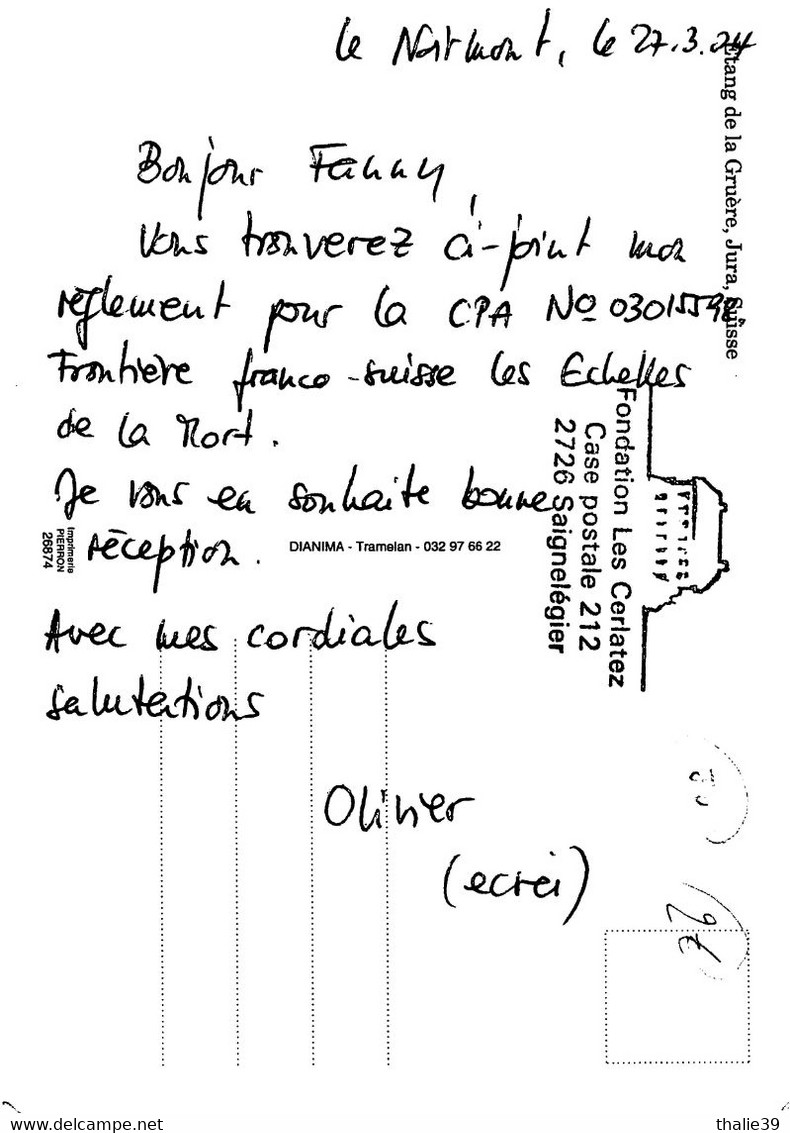 le Noirmont, le 27.3.24
Étang de la Gruère, Jura, Suisse
Bonjour Fanny,
Vous trouverez ci-joint mon
règlement pour la CPA No
Frontière franco-suisse les Echelles
de la Mort.
Je vous en souhaite bonne
réception.
Avec mes cordiales
salutations
Olivier
(ecrei)
Fondation Les Cerlatez
Case postale 212
2726 Saignelégier
DIANIMA - Tramelan - 032 97 66 22
Imprimerie
PIERRON
26874
delcampe.net
thalie39